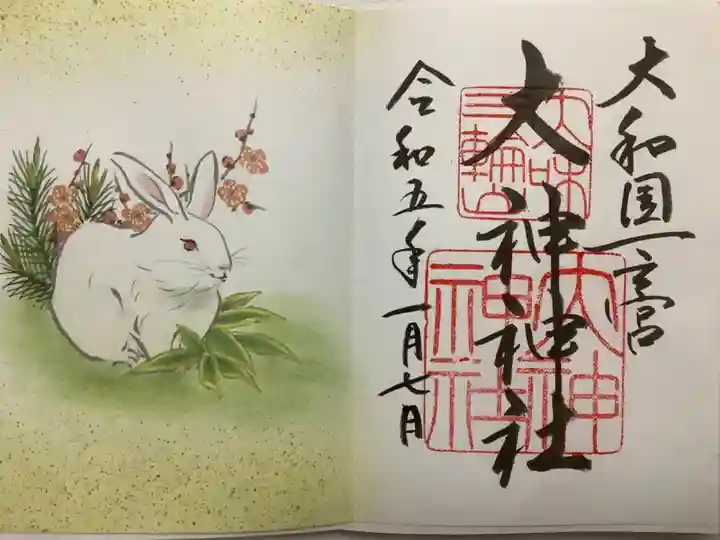 大和国一之宮
大神神社
令和五年一月七日
三輪山
大神神社